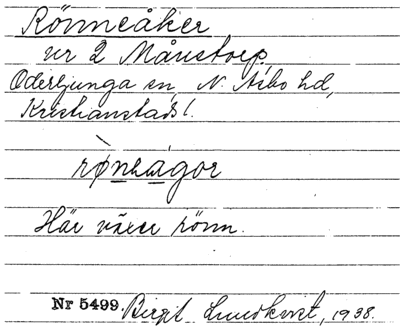 Rönneåker
nr 2 Månstorp,
Oderljunga sn, N. Åsbo hd,
Kristianstads l.
rø̀neágor
Här växer rönn.
Nr 5499. Birgit Lundkvist, 1938.